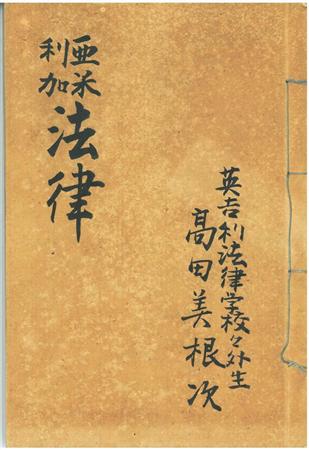 英吉利法律学校々外生
高田美根次
亜米
利加
法律